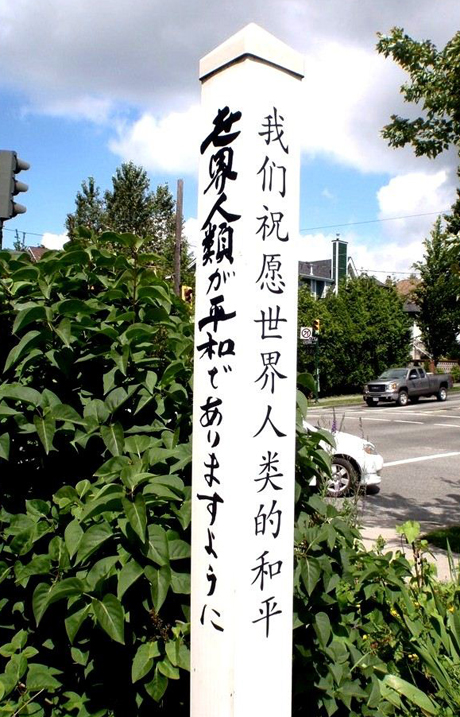 世界人類が平和でありますように
我们祝愿世界人类的和平